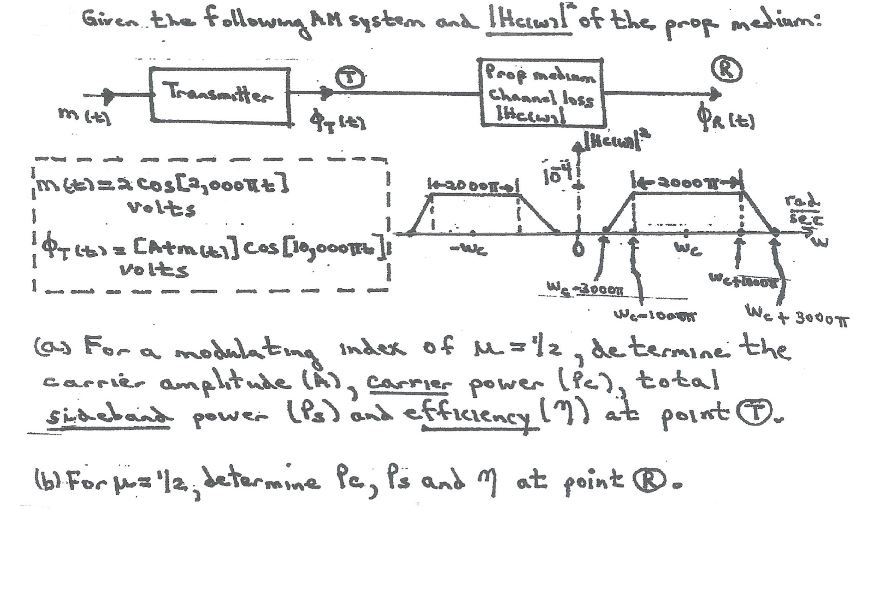 Given the following AM system and |Hc(w)|² of the prop medium:
m(t)
Transmitter
Ⓣ
ϕT(t)
Prop medium
channel loss
|Hc(w)|
Ⓡ
ϕR(t)
m(t)=2cos[2,000πt]
volts
ϕT(t) = [A+m(t)] cos[10,000πt]
volts
|Hc(w)|²
10⁻⁴
2000π
2000π
rad/sec
w
-wc
0
wc
wc-3000π
wc-1000π
wc+1000π
wc+3000π
(a) For a modulating index of μ=1/2, determine the
carrier amplitude (A), carrier power (Pc), total
sideband power (Ps) and efficiency (η) at point Ⓣ.
(b) For μ=1/2, determine Pc, Ps and η at point Ⓡ.